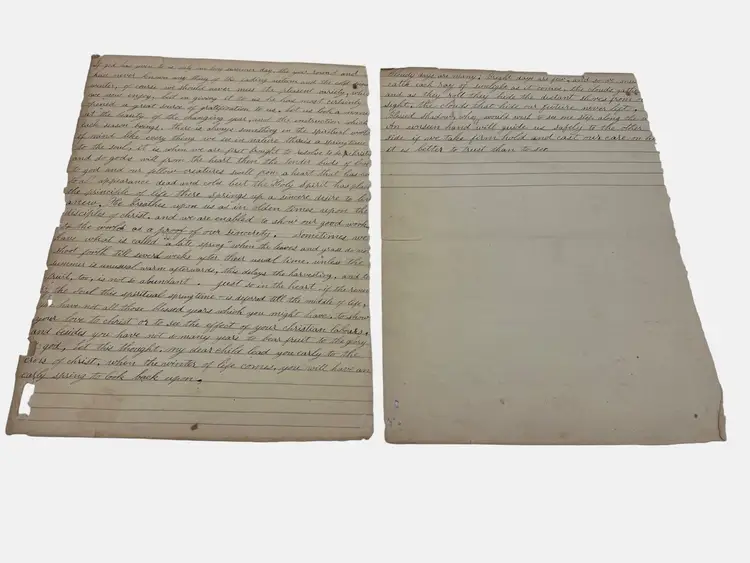 If god has given to us one long summer day, the year round and
have never known any thing of the autumn and the cold of
winter, of course we should never miss the pleasant variety, which
we now enjoy. but in giving it to us he has most certainly
opened a great source of gratification to us. Let us look a moment
at the beauty of the changing year, and the instruction which
each season brings. There is always something in the spiritual world
is some like every thing we see in nature. There is a spring time
to the soul, it is when we are first brought to resolve to be
and so gods will from the heart then the tender buds of love
to god and our fellow creatures swell from a heart that has
to all appearance dead and cold but the Holy Spirit has placed
the principle of life there springs up a sincere desire to live
anew. He breathes upon us as in olden times upon the
disciples of christ, and we are enabled to show our good works
to the world as a proof of our sincerity. Sometimes we
have what is called "a late spring" when the leaves and grass do not
shoot forth till several weeks after their usual time, unless the
summer is unusual warm afterwards, this delays the harvesting, and the
fruit, too, is not so abundant. just so in the heart, if the
of the soul this spiritual springtime is defered till the middle of life,
have not all those blessed years which you might have, to show
your love to christ or to see the effect of your christian labours,
and besides you have not so many years to bear fruit to the glory
god, let this thought, my dear child lead you early to the
cross of christ, when the winter of life comes, you will have an
early spring to look back upon.
Cloudy days are many, bright days are few, and so we
each ray of sunlight as it comes, the clouds
and as they roll they hide the distant shores from
sight, the clouds that hide our picture never last.
Cloud shadows, who would wish to see one step along the
An unseen hand will guide us safely to the other
side if we take firmer hold and cast our care on
it is better to trust than to see